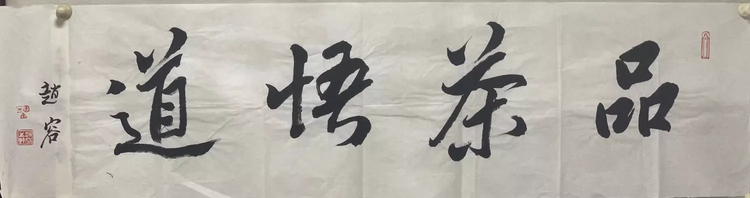 品茶悟道
趙容